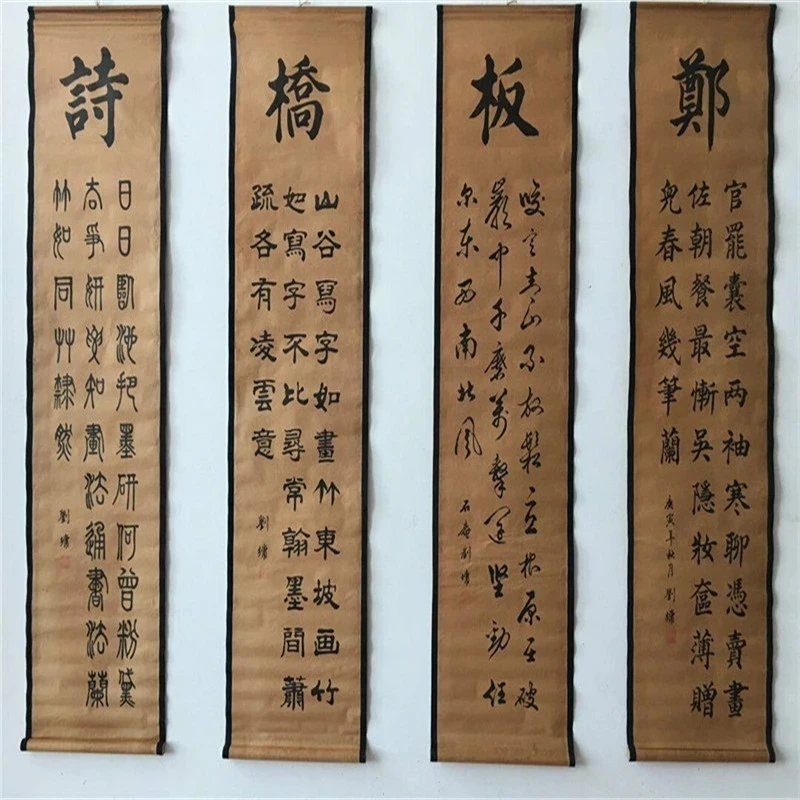 鄭
官罷囊空两袖寒聊憑賣畫
佐朝餐最慚吳隱妝奩薄贈
兒春風幾筆蘭
庚寅年秋月 劉墉
板
咬定青山不放鬆立根原在破
巖中千磨萬擊還坚勁任
尔东西南北风
石庵劉墉
橋
山谷寫字如畫竹東坡画竹
如寫字不比尋常翰墨間蕭
疏各有凌雲意
劉墉
詩
日日臨池把墨研何曾粉黛
去爭妍要知畫法通書法蘭
竹如同艸隸然
劉墉